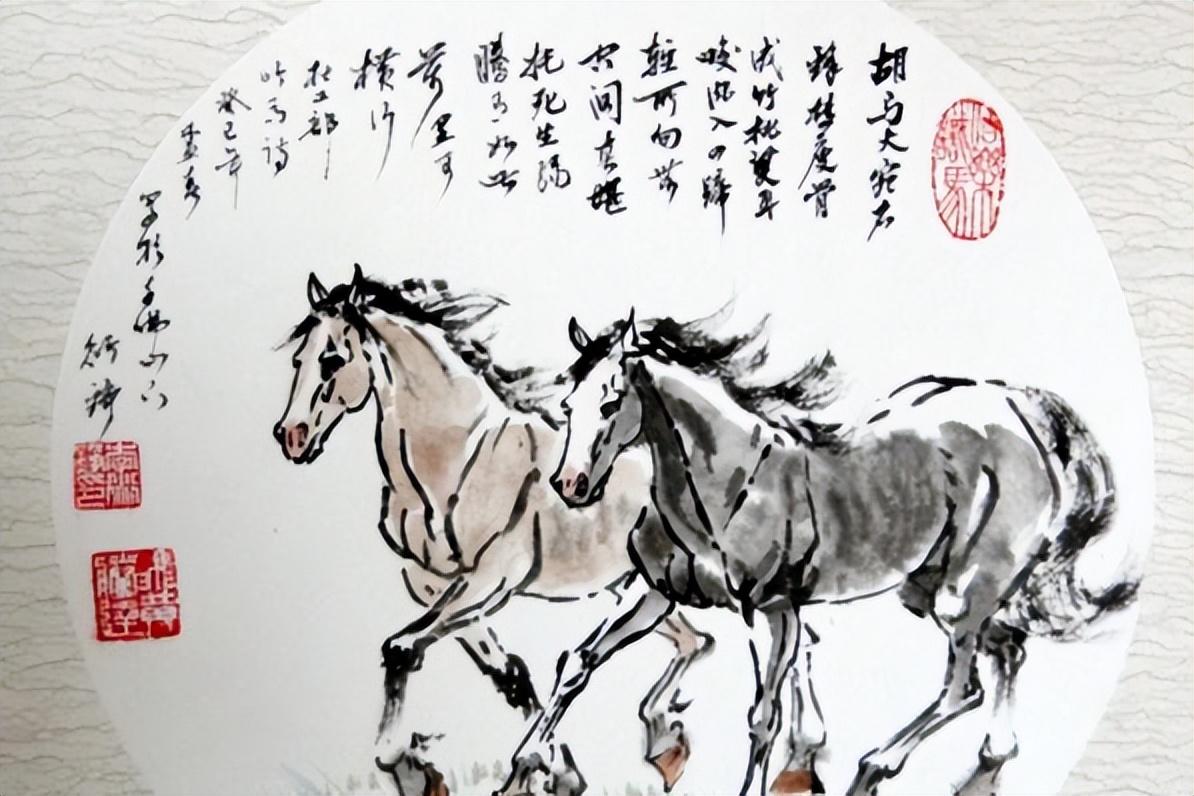 伯樂識馬
胡马大宛名
锋棱瘦骨
成竹批雙耳
峻风入四蹄
轻所向无
空阔真堪
托死生骁
腾有如此
万里可
横行
杜工部
咏马诗
癸巳年
孟春
写於千佛山下